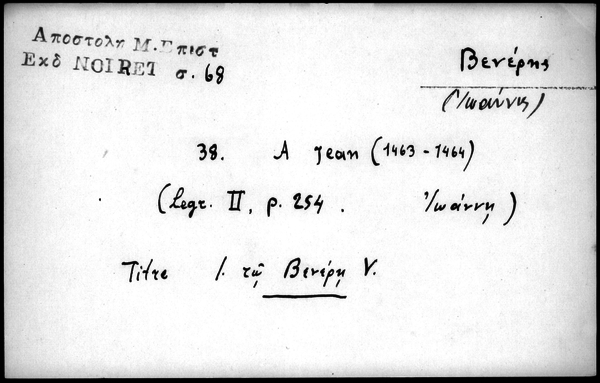 Αποστολη Μ. Επιστ
Εκδ NOIRET σ. 68
Βενέρης
(Ἰωάννης)
38. A Jean (1463 - 1464)
(Legr. II, p. 254. Ἰωάννῃ)
Titre I. τῷ Βενέρῃ V.